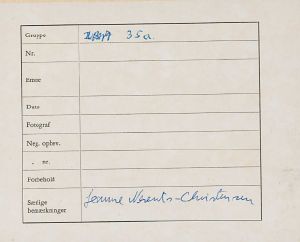 Gruppe 35a.
Nr.
Emne
Dato
Fotograf
Neg. opbev.
„ nr.
Forbehold
Særlige
bemærkninger Christensen